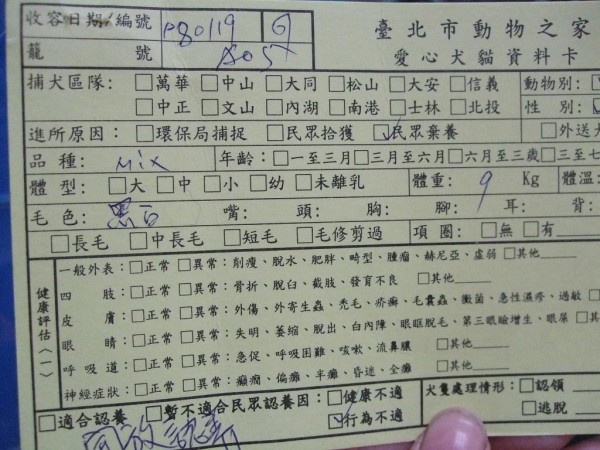 收容日期/編號 P80119
臺北市動物之家
籠號 A05
愛心犬貓資料卡
捕犬區隊: □萬華 □中山 □大同 □松山 □大安 □信義 動物別:
□中正 □文山 □內湖 □南港 □士林 □北投 性別:
進所原因: □環保局捕捉 □民眾拾獲 ☑民眾棄養 □外送
品種: Mix 年齡: □一至三月 □三月至六月 □六月至三歲 □三至七
體型: □大 □中 □小 □幼 □未離乳 體重: 9 Kg 體溫:
毛色: 黑白 嘴: 頭: 胸: 腳: 耳: 背:
□長毛 □中長毛 □短毛 □毛修剪過 項圈: □無 □有
健康評估(一)
一般外表: □正常 □異常: 削瘦、脫水、肥胖、畸型、腫瘤、赫尼亞、虛弱 □其他
四肢: □正常 □異常: 骨折、脫臼、截肢、發育不良 □其他
皮膚: □正常 □異常: 外傷、外寄生蟲、禿毛、疥癬、毛囊蟲、黴菌、急性濕疹、過敏
眼睛: □正常 □異常: 失明、萎縮、脫出、白內障、眼眶脫毛、第三眼瞼增生、眼屎 □其
呼吸道: □正常 □異常: 急促、呼吸困難、咳嗽、流鼻膿 □其他
神經症狀: □正常 □異常: 癲癇、偏癱、半癱、昏迷、全癱 □其他
□適合認養 □暫不適合民眾認養因: □健康不適 犬隻處理情形: □認領
☑行為不適 □逃脫
開放認養